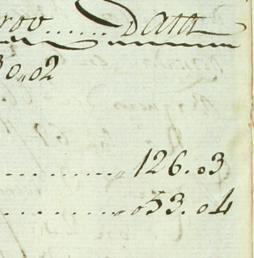 rov....... Data
30,,02
............ 126.03
............ ,,53.04